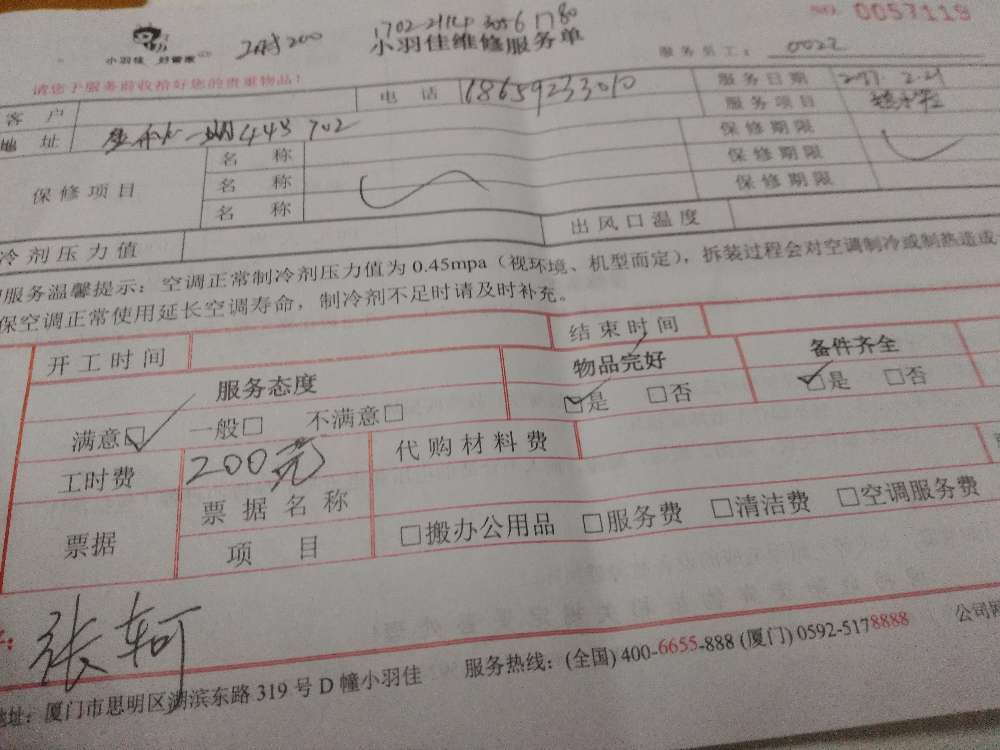 NO. 0057119
1702-2114 3056 1780
小羽佳 好管家
小羽佳维修服务单
服务员工: 0022
请您于服务前收拾好您的贵重物品!
客户 电话 18659233010 服务日期 2.21
地址 443 702 服务项目
保修项目 名称 保修期限
名称 保修期限
名称 保修期限
冷剂压力值 出风口温度
服务温馨提示：空调正常制冷剂压力值为 0.45mpa（视环境、机型而定），拆装过程会对空调制冷或制热造成
保空调正常使用延长空调寿命，制冷剂不足时请及时补充。
开工时间 结束时间
服务态度 物品完好 备件齐全
满意□ 一般□ 不满意□ □是 □否 □是 □否
工时费 200元 代购材料费
票据 票据名称
项目 □搬办公用品 □服务费 □清洁费 □空调服务费
张轲
地址: 厦门市思明区湖滨东路 319 号 D 幢小羽佳 服务热线: (全国) 400-6655-888 (厦门) 0592-5178888 公司网